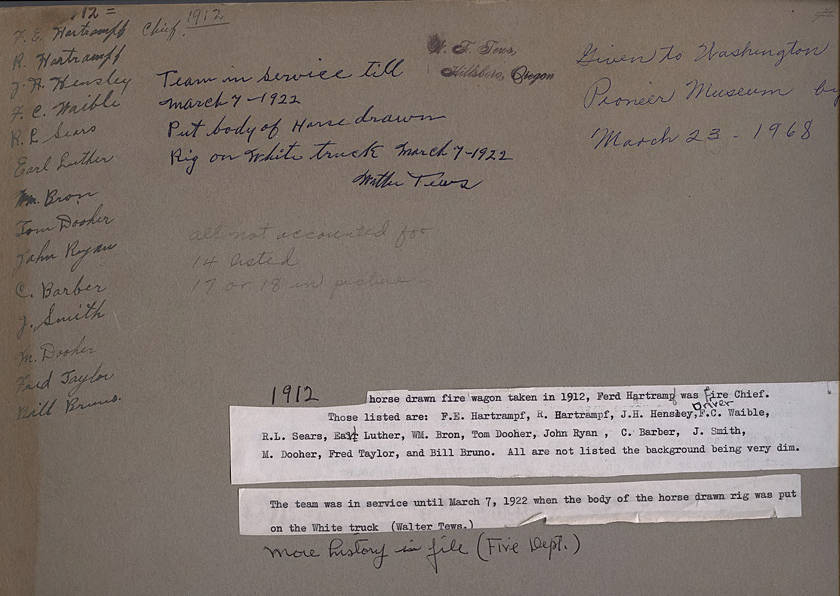 12 =
F. E. Hartrampf Chief. 1912
R. Hartrampf
J. H. Hensley
F. C. Waible
R. L. Sears
Earl Luther
Wm. Bron
Tom Dooher
John Ryan
C. Barber
J. Smith
M. Dooher
Fred Taylor
Bill Bruno.
Team in service till
March 7-1922
Put body of Horse drawn
Rig on White truck March 7-1922
Walter Tews
W. F. Tews,
Hillsboro, Oregon
Given to Washington
Pioneer Museum by
March 23 - 1968
all not accounted for
14 listed
17 or 18 in picture
1912
horse drawn fire wagon taken in 1912, Ferd Hartramp was Fire Chief.
Driver
Those listed are: F.E. Hartrampf, R. Hartrampf, J.H. Hensley,F.C. Waible,
R.L. Sears, Earl Luther, WM. Bron, Tom Dooher, John Ryan , C. Barber, J. Smith,
M. Dooher, Fred Taylor, and Bill Bruno. All are not listed the background being very dim.
The team was in service until March 7, 1922 when the body of the horse drawn rig was put
on the White truck (Walter Tews.)
More history in file (Fire Dept.)